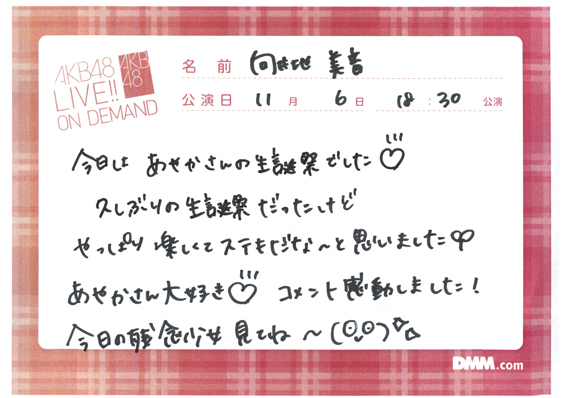 AKB48
LIVE!!
ON DEMAND
AKB
48
名前 向井地 美音
公演日 11月 6日 18:30 公演
今日は あやかさんの生誕祭でした♡
久しぶりの生誕祭だったけど
やっぱり楽しくてステキだな〜と思いました
あやかさん大好き♡ コメント感動しました!
今日の残念少女見てね〜
DMM.com